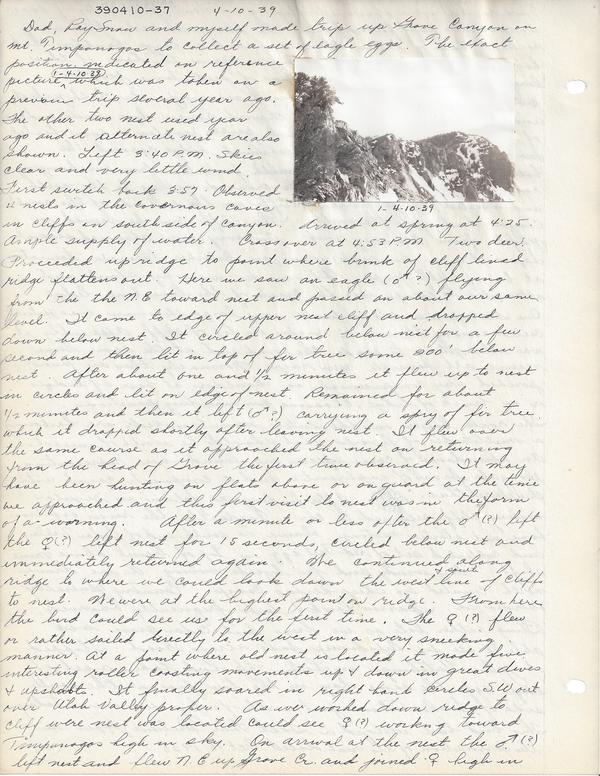 390410-37 4-10-39
Dad, Ray Snow and myself made trip up Grove Canyon on
Mt. Timponogos to collect a set of eagle eggs. The exact
position indicated on reference
1-4-10-39
picture ^ which was taken on a
previous trip several year ago.
The other two nest used year
ago and it alternate nest are also
shown. Left 3:40 P.M. Skies
clear and very little wind.
First switch back 3:57. Observed
nests in the cavernous caves
1- 4-10-39
in cliffs on south side of canyon. Arrived at spring at 4:25.
Ample supply of water. Crossover at 4:53 P.M. Two deer.
Proceeded up ridge to point where bunk of cliff lined
ridge flattens out. Here we saw an eagle (♂?) flying
from the the N.E toward nest and passed on about our same
level. It came to edge of upper nest cliff and dropped
down below nest. It circled around below nest for a few
second and then lit in top of fir tree some 200' below
nest. After about one and 1/2 minutes it flew up to nest
in circles and lit on edge of nest. Remained for about
1/2 minutes and then it left (♂?) carrying a spry of fir tree.
which it dropped shortly after leaving nest. It flew over
the same course as it approached the nest on returning
from the head of Grove the first time observed. It may
have been hunting on flats above or on guard at the time
we approached and this first visit to nest was in the form
of a warning. After a minute or less after the ♂(?) left
the ♀(?) left nest for 15 seconds, circled below nest and
immediately returned again. We continued along
ridge to where we could look down the west line of cliffs
to nest. We were at the highest point on ridge. From here
the bird could see us for the first time. The ♀ (?) flew
or rather sailed directly to the west in a very sneeking
manner. At a point where old nest is located it made five
interesting roller coasting movements up & down in great dives
& upshoots. It finally soared in right hand circles S.W out
over Utah Valley proper. As we worked down ridge to
cliff were nest was located could see ♀(?) workng toward
Timponogos high in sky. On arrival at the nest the ♂(?)
left nest and flew N.E up Grove Cr. and joined ♀ high in